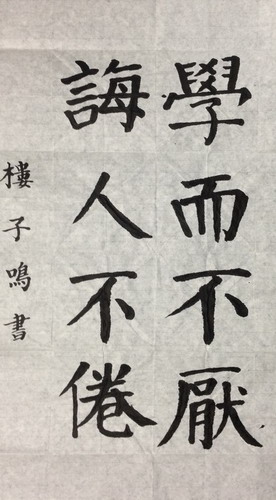 學而不厭
誨人不倦
樓子鳴書